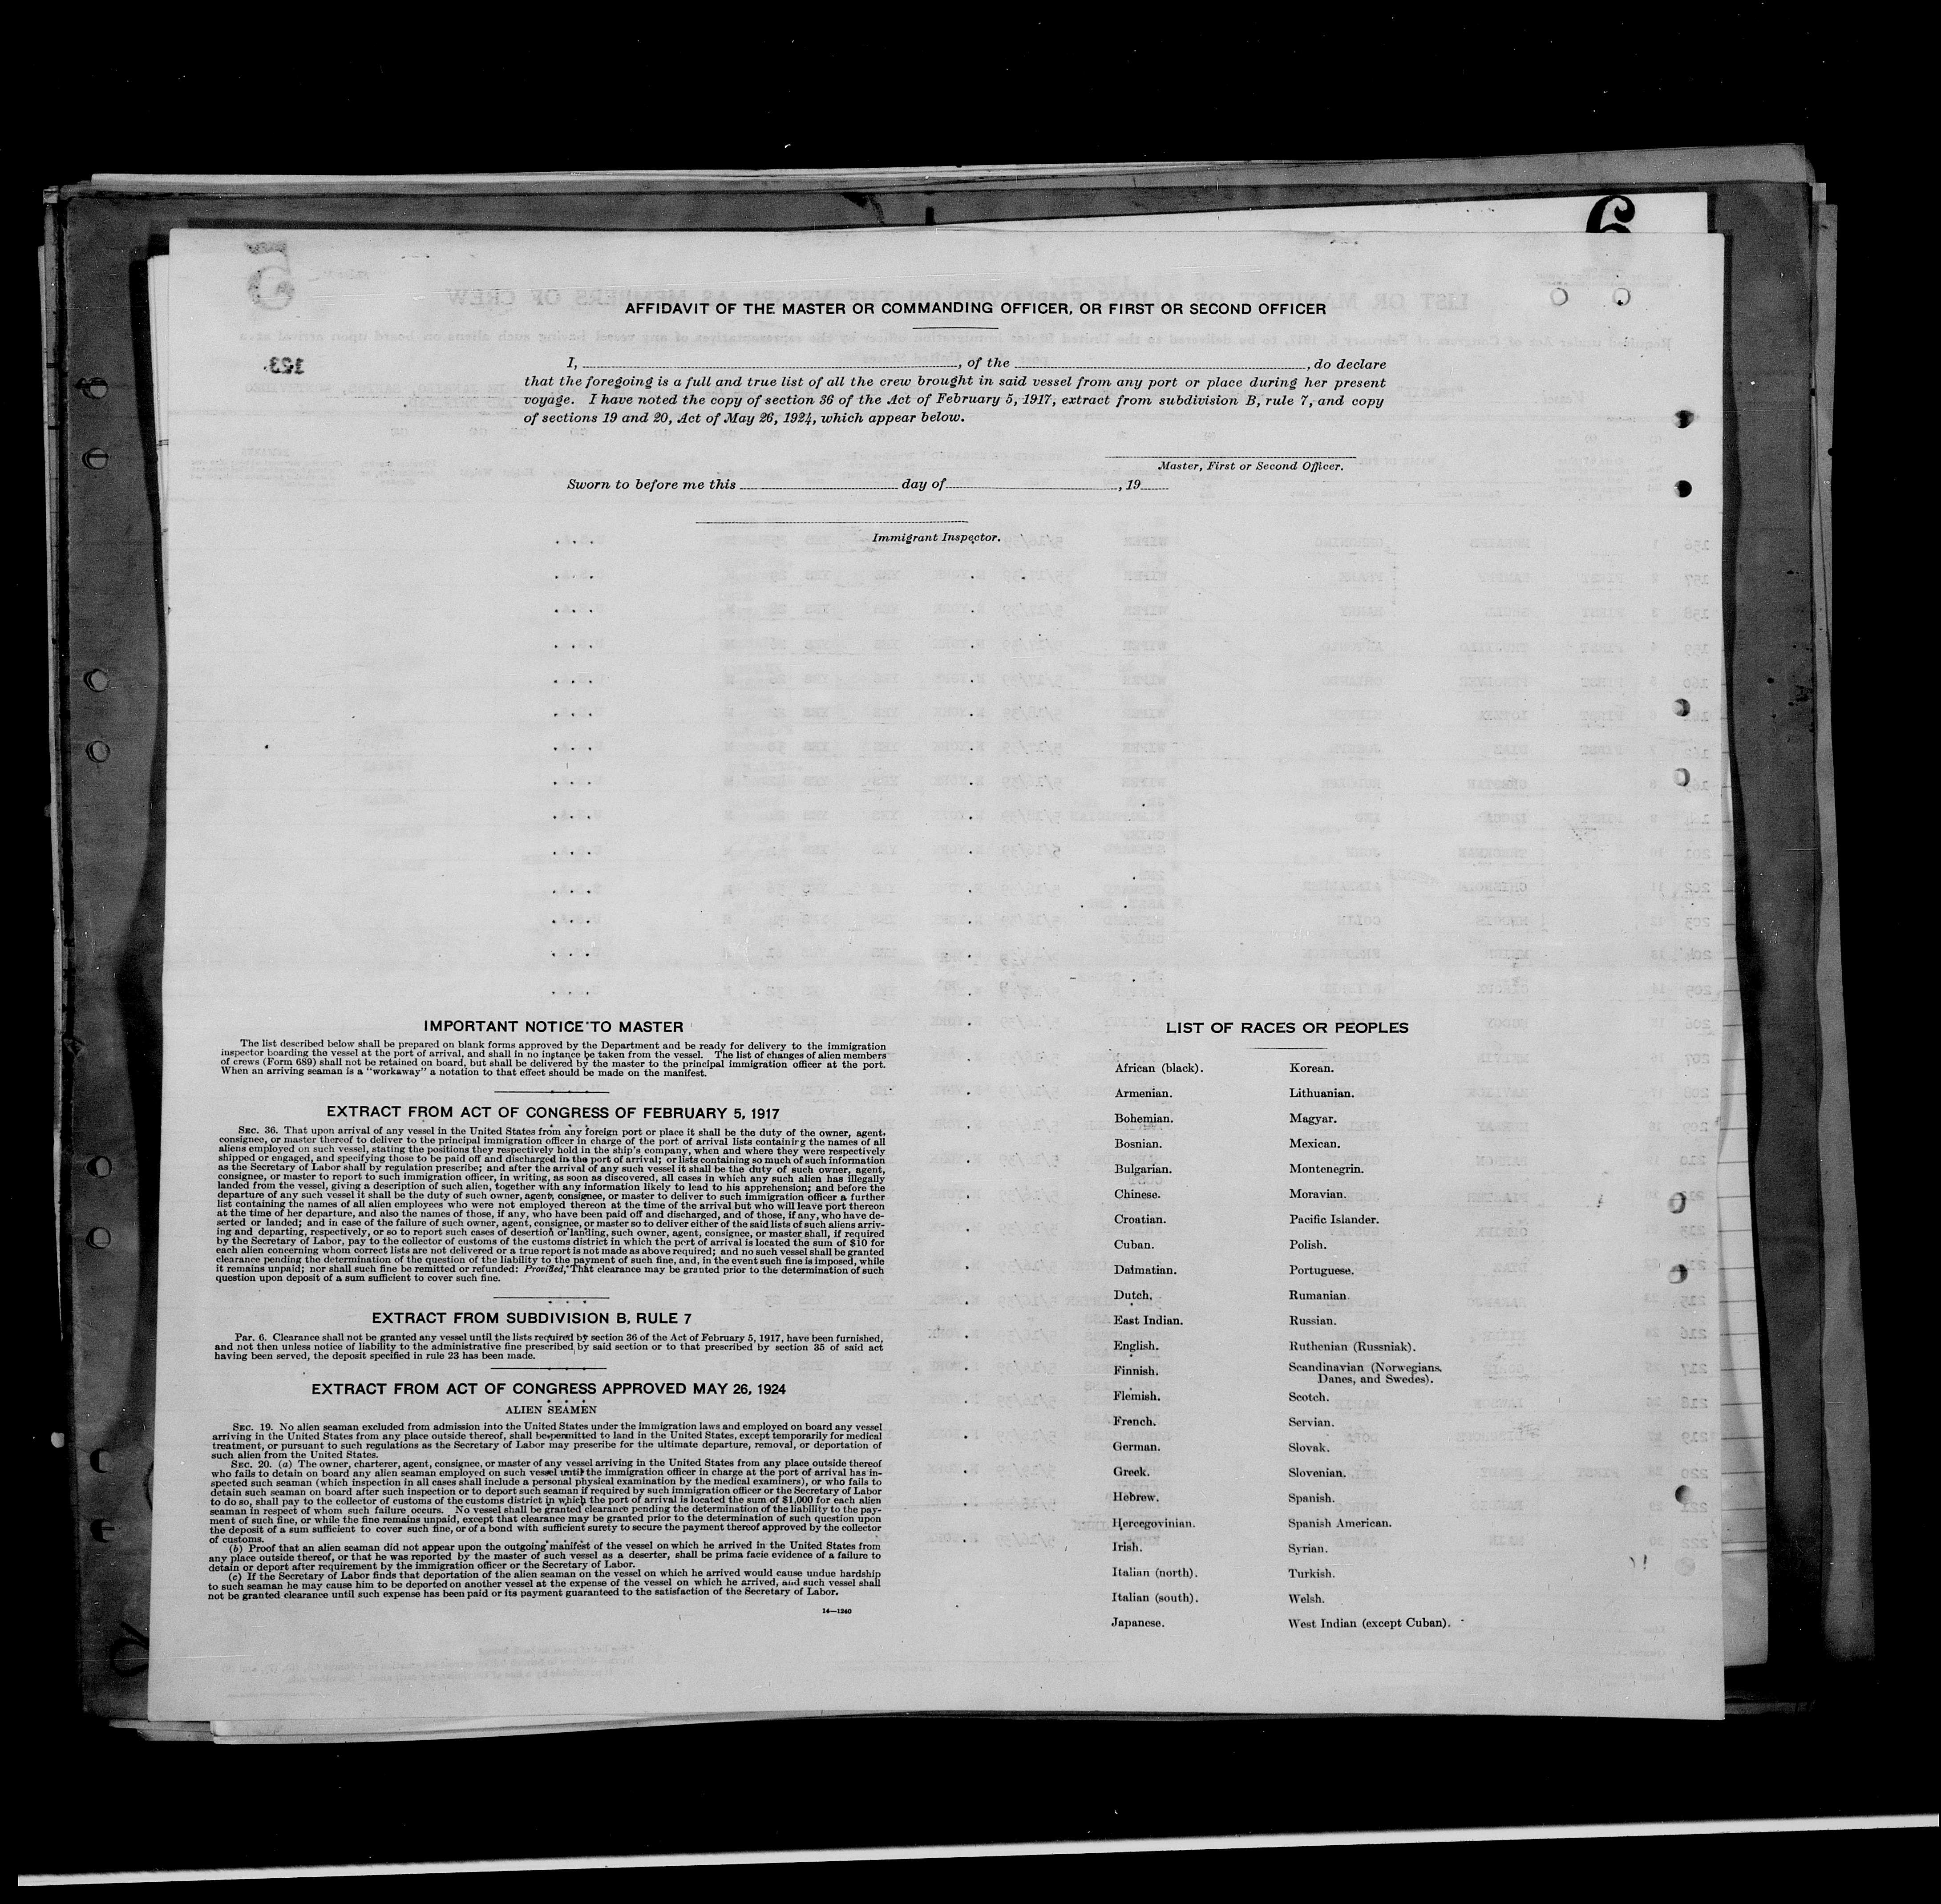 6
AFFIDAVIT OF THE MASTER OR COMMANDING OFFICER, OR FIRST OR SECOND OFFICER
I, , of the , do declare
that the foregoing is a full and true list of all the crew brought in said vessel from any port or place during her present
voyage. I have noted the copy of section 36 of the Act of February 5, 1917, extract from subdivision B, rule 7, and copy
of sections 19 and 20, Act of May 26, 1924, which appear below.
Master, First or Second Officer.
Sworn to before me this day of , 19
Immigrant Inspector.
IMPORTANT NOTICE TO MASTER
The list described below shall be prepared on blank forms approved by the Department and be ready for delivery to the immigration
inspector boarding the vessel at the port of arrival, and shall in no instance be taken from the vessel. The list of changes of alien members
of crews (Form 689) shall not be retained on board, but shall be delivered by the master to the principal immigration officer at the port.
When an arriving seaman is a "workaway" a notation to that effect should be made on the manifest.
EXTRACT FROM ACT OF CONGRESS OF FEBRUARY 5, 1917
SEC. 36. That upon arrival of any vessel in the United States from any foreign port or place it shall be the duty of the owner, agent,
consignee, or master thereof to deliver to the principal immigration officer in charge of the port of arrival lists containing the names of all
aliens employed on such vessel, stating the positions they respectively hold in the ship's company, when and where they were respectively
shipped or engaged, and specifying those to be paid off and discharged in the port of arrival; or lists containing so much of such information
as the Secretary of Labor shall by regulation prescribe; and after the arrival of any such vessel it shall be the duty of such owner, agent,
consignee, or master to report to such immigration officer, in writing, as soon as discovered, all cases in which any such alien has illegally
landed from the vessel, giving a description of such alien, together with any information likely to lead to his apprehension; and before the
departure of any such vessel it shall be the duty of such owner, agent, consignee, or master to deliver to such immigration officer a further
list containing the names of all alien employees who were not employed thereon at the time of the arrival but who will leave port thereon
at the time of her departure, and also the names of those, if any, who have been paid off and discharged, and of those, if any, who have de-
serted or landed; and in case of the failure of such owner, agent, consignee, or master so to deliver either of the said lists of such aliens arriv-
ing and departing, respectively, or so to report such cases of desertion or landing, such owner, agent, consignee, or master shall, if required
by the Secretary of Labor, pay to the collector of customs of the customs district in which the port of arrival is located the sum of $10 for
each alien concerning whom correct lists are not delivered or a true report is not made as above required; and no such vessel shall be granted
clearance pending the determination of the question of the liability to the payment of such fine, and, in the event such fine is imposed, while
it remains unpaid; nor shall such fine be remitted or refunded: Provided, That clearance may be granted prior to the determination of such
question upon deposit of a sum sufficient to cover such fine.
EXTRACT FROM SUBDIVISION B, RULE 7
Par. 6. Clearance shall not be granted any vessel until the lists required by section 36 of the Act of February 5, 1917, have been furnished,
and not then unless notice of liability to the administrative fine prescribed by said section or to that prescribed by section 35 of said act
having been served, the deposit specified in rule 23 has been made.
EXTRACT FROM ACT OF CONGRESS APPROVED MAY 26, 1924
ALIEN SEAMEN
SEC. 19. No alien seaman excluded from admission into the United States under the immigration laws and employed on board any vessel
arriving in the United States from any place outside thereof, shall be permitted to land in the United States, except temporarily for medical
treatment, or pursuant to such regulations as the Secretary of Labor may prescribe for the ultimate departure, removal, or deportation of
such alien from the United States.
SEC. 20. (a) The owner, charterer, agent, consignee, or master of any vessel arriving in the United States from any place outside thereof
who fails to detain on board any alien seaman employed on such vessel until the immigration officer in charge at the port of arrival has in-
spected such seaman (which inspection in all cases shall include a personal physical examination by the medical examiners), or who fails to
detain such seaman on board after such inspection or to deport such seaman if required by such immigration officer or the Secretary of Labor
to do so, shall pay to the collector of customs of the customs district in which the port of arrival is located the sum of $1,000 for each alien
seaman in respect of whom such failure occurs. No vessel shall be granted clearance pending the determination of the liability to the pay-
ment of such fine, or while the fine remains unpaid, except that clearance may be granted prior to the determination of such question upon
the deposit of a sum sufficient to cover such fine, or of a bond with sufficient surety to secure the payment thereof approved by the collector
of customs.
(b) Proof that an alien seaman did not appear upon the outgoing manifest of the vessel on which he arrived in the United States from
any place outside thereof, or that he was reported by the master of such vessel as a deserter, shall be prima facie evidence of a failure to
detain or deport after requirement by the immigration officer or the Secretary of Labor.
(c) If the Secretary of Labor finds that deportation of the alien seaman on the vessel on which he arrived would cause undue hardship
to such seaman he may cause him to be deported on another vessel at the expense of the vessel on which he arrived, and such vessel shall
not be granted clearance until such expense has been paid or its payment guaranteed to the satisfaction of the Secretary of Labor.
14—1240
LIST OF RACES OR PEOPLES
African (black).
Armenian.
Bohemian.
Bosnian.
Bulgarian.
Chinese.
Croatian.
Cuban.
Dalmatian.
Dutch.
East Indian.
English.
Finnish.
Flemish.
French.
German.
Greek.
Hebrew.
Hercegovinian.
Irish.
Italian (north).
Italian (south).
Japanese.
Korean.
Lithuanian.
Magyar.
Mexican.
Montenegrin.
Moravian.
Pacific Islander.
Polish.
Portuguese.
Rumanian.
Russian.
Ruthenian (Russniak).
Scandinavian (Norwegians,
Danes, and Swedes).
Scotch.
Servian.
Slovak.
Slovenian.
Spanish.
Spanish American.
Syrian.
Turkish.
Welsh.
West Indian (except Cuban).